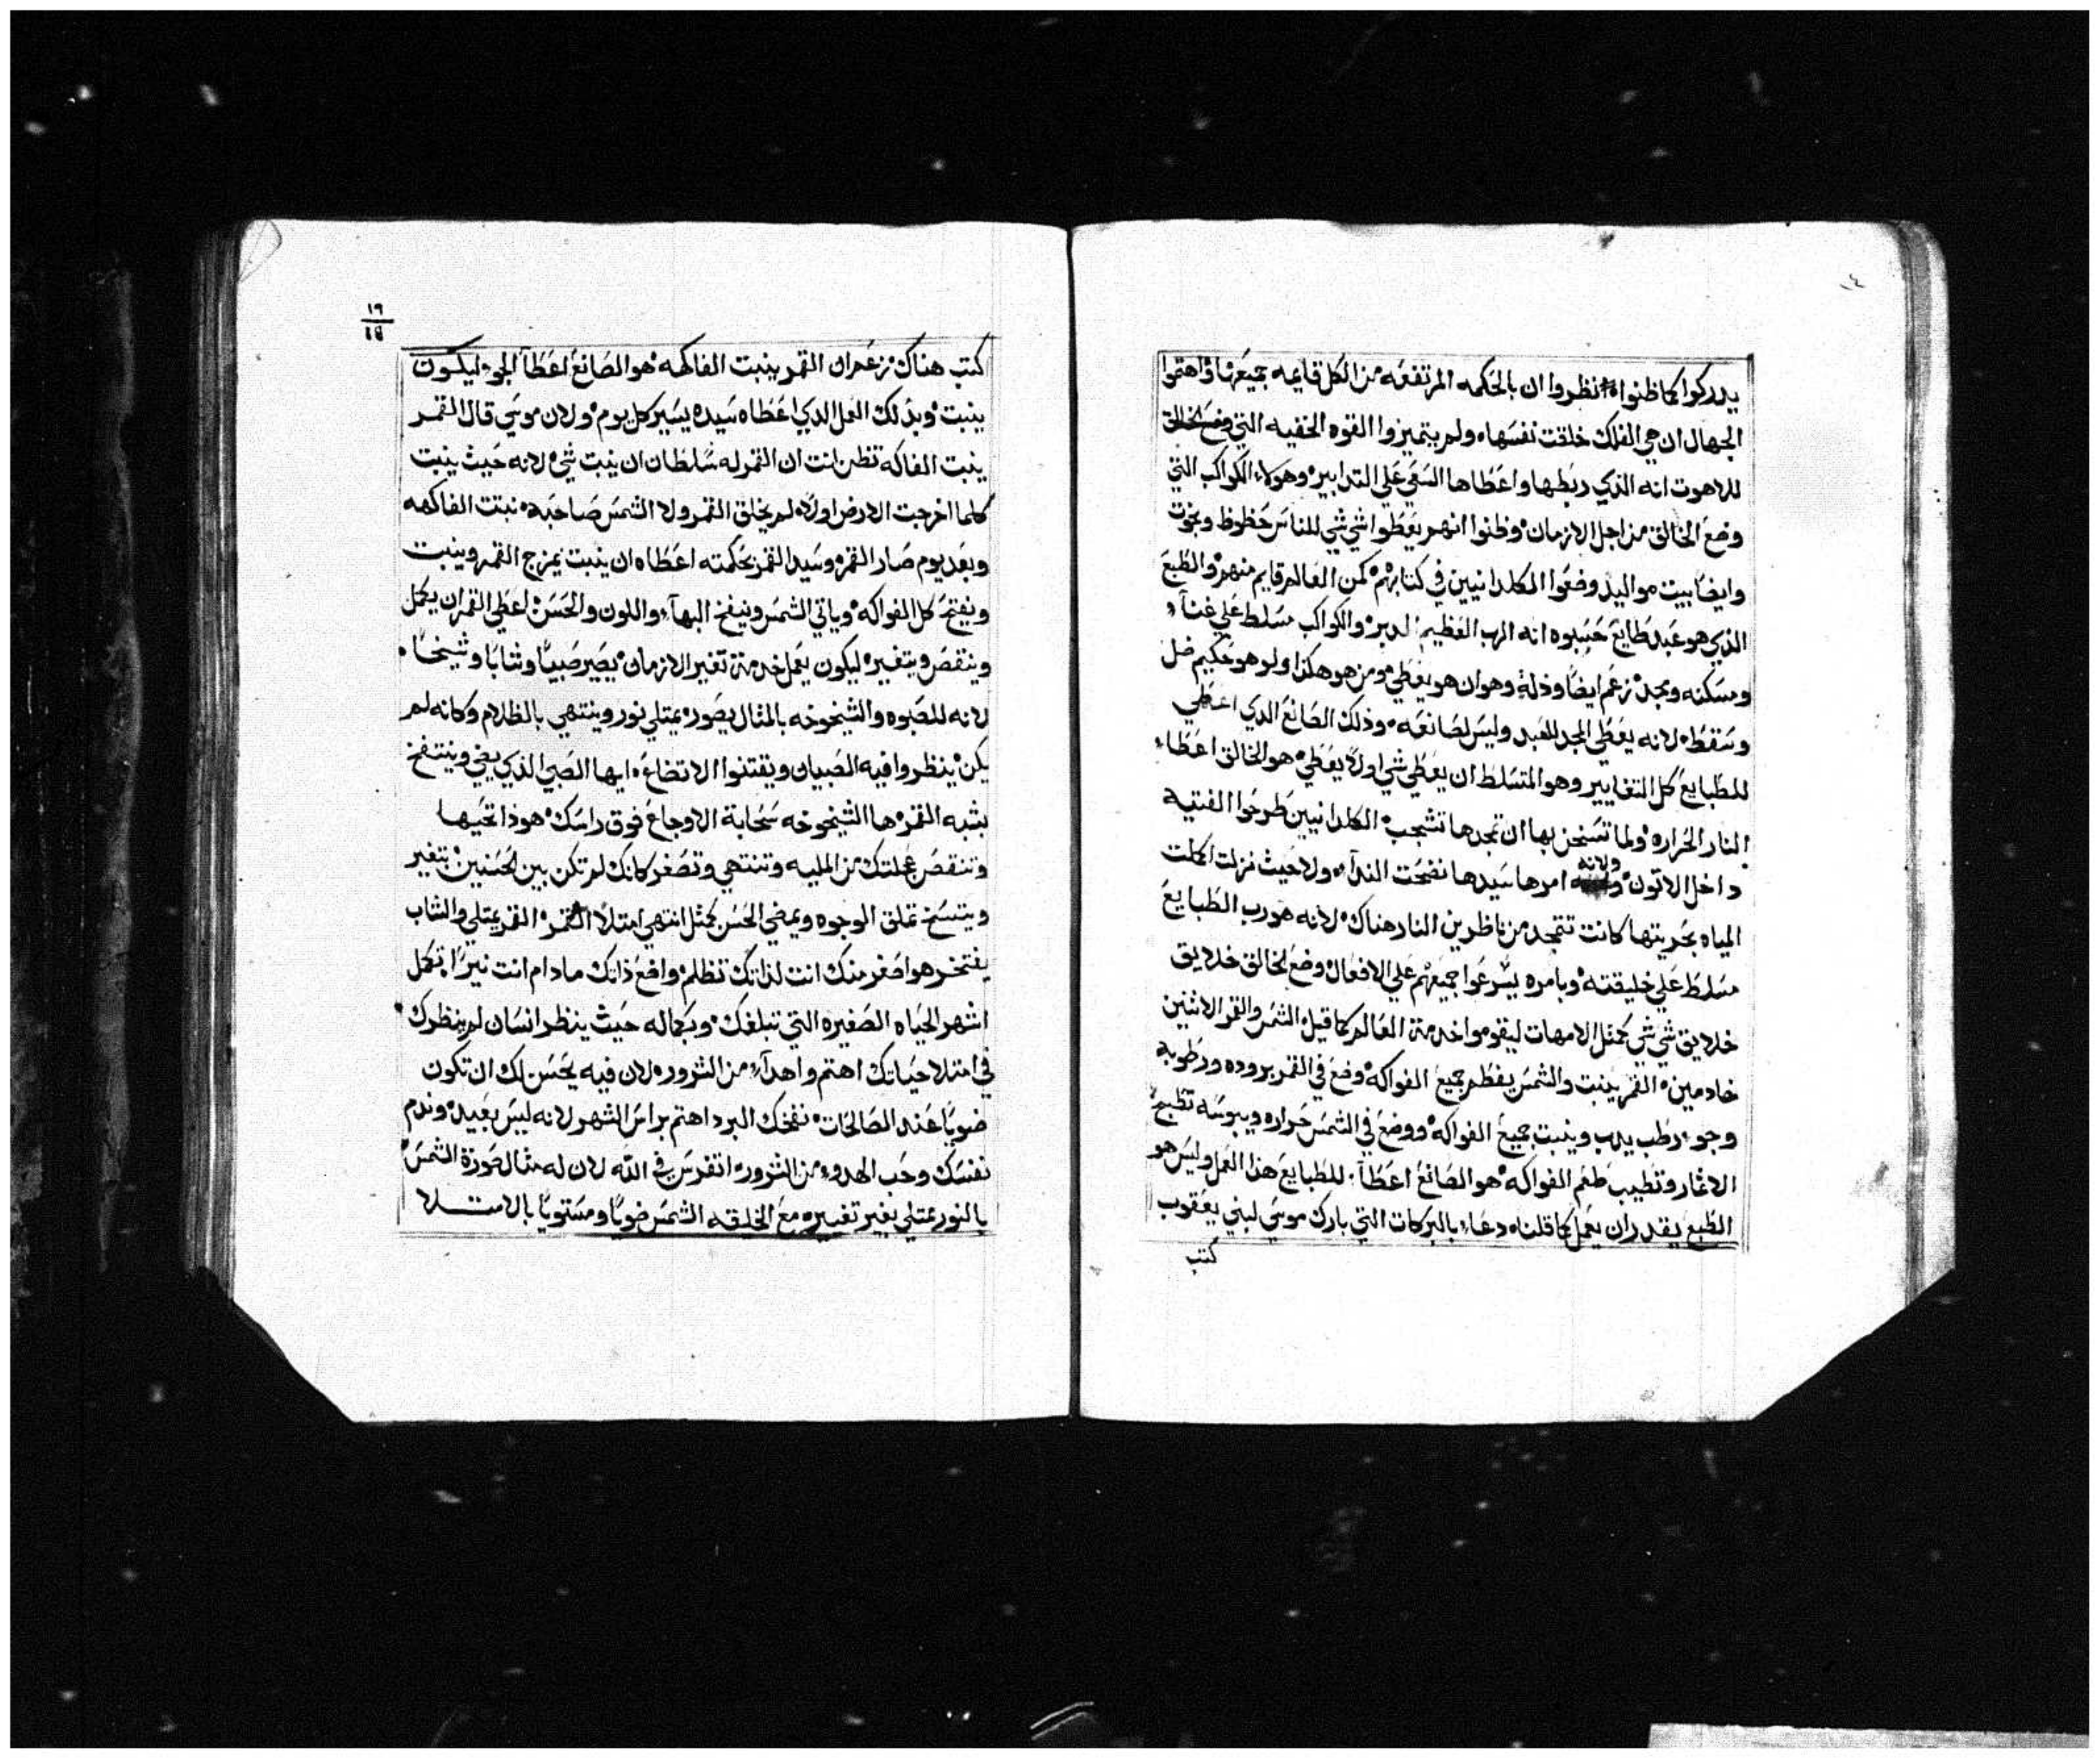 ١٤
يدركوا كما ظنوا انظروا ان بالحكمه المرتفعه من الكل قايمه جميعها واهتموا
الجهال ان هي الفلك خلقت نفسها ولم يتميزوا القوه الخفيه التي وضع الخالق
للاهوت انه الذي ربطها واعطاها السعي علي التدابير وهولاء الكواكب التي
وضع الخالق من اجل الازمان وظنوا انهم يعطوا شي شي للناس حظوظ وبخوت
وايضا بيت مواليد وضعوا الكلدانيين في كتابهم كمن العالم قايم منهم والطبع
الذي هو عبد طايع حسبوه انه الرب العظيم المدبر والكواكب مسلط علي غناء
ومسكنه ومجد زعم ايضا وذله وهو ان هو يعطي ومن هو هكذا ولو هو حكيم ضل
وسقط لانه يعطي المجد للعبد وليس لصانعه وذلك الصانع الدي اعطي
للطبايع كل التغايير وهو المتسلط ان يعطي شي اولا يعطي هو الخالق اعطاء
النار الحراره ولما تسخن بها ان تمجدها تشجب الكلدانيين طرحوا الفتيه
داخل الاتون ولانه امرها سيدها نضحت الندآء ولا حيث نزلت اكملت
المياه بجريتها كانت تتمجد من ناظرين النار هناك لانه هو رب الطبايع
مسلط علي خليقته وبامره يسرعوا جميعهم علي الافعال وضع الخالق خلايق
خلايق شي شي كمثل الامهات ليقوموا خدمة العالم كما قيل الشمس والقمر الاثنين
خادمين القمر ينبت والشمس يفطم جميع الفواكه وضع في القمر بروده ورطوبه
وجو رطب يدب وينبت جميع الفواكه ووضع في الشمس حراره ويبوسه تطبع
الاثمار وتطيب طعم الفواكه هو الصانع اعطآ للطبايع هذا العمل وليس هو
الطبع يقدر ان يعمل كما قلنا دعاء بالبركات التي بارك موسي لبني يعقوب
كتب
١٦
١٤
كتب هناك زعم ان القمر ينبت الفاكهه هو الصانع اعطآ الجو ليكون
ينبت وبذلك العمل الدي اعطاه سيده يسير كل يوم ولان موسي قال القمر
ينبت الفاكه تظن انت ان القمر له سلطان ان ينبت شي لانه حيث ينبت
كلما اخرجت الارض اولا لم يخلق القمر ولا الشمس صاحبه نبتت الفاكهه
وبعد يوم صار القمر وسيد القمر بحكمته اعطاه ان ينبت يمزج القمر وينبت
ويفتح كل الفواكه وياتي الشمس وينفخ البهآء واللون والحسن اعطي القمر ان يكمل
وينقص ويتغير ليكون يعمل خدمة تغير الازمان يصير صبيا وشابا وشيخا
لانه للصبوه والشيخوخه بالمثال يصور يمتلي نور وينتهي بالظلام وكانه لم
يكن ينظروا فيه الصبيان ويقتنوا الاتضاع ايها الصبي الذي يضي وينتفخ
بشبه القمر ها الشيخوخه سحابة الاوجاع فوق راسك هوذا تحيها
وتنقص عجلتك من المليه وتنتهي وتصغر كانك لم تكن بين الحسنين يتغير
ويتسخ تملق الوجوه ويمضي الحسن كمثل انتهي امتلا القمر القمر يمتلي والشاب
يفتخر هو اصغر منك انت لذاتك تظلم واضع ذاتك مادام انت نيرا تكمل
اشهر الحياه الصغيره التي تبلغك وبكماله حيث ينظر انسان لم ينظرك
في امتلا حياتك اهتم واهدآء من الشرور لان فيه يحسن لك ان تكون
ضويا عند الصالحات نفختك البرد اهتم براس الشهر لانه ليس بعيد وندم
نفسك وحب الهدوء من الشرور اتفرس في الله لان له مثال صورة الشمس
بالنور يمتلي بغير تغييره مع الخليقه الشمس ضويا ومستويا بالامتلا